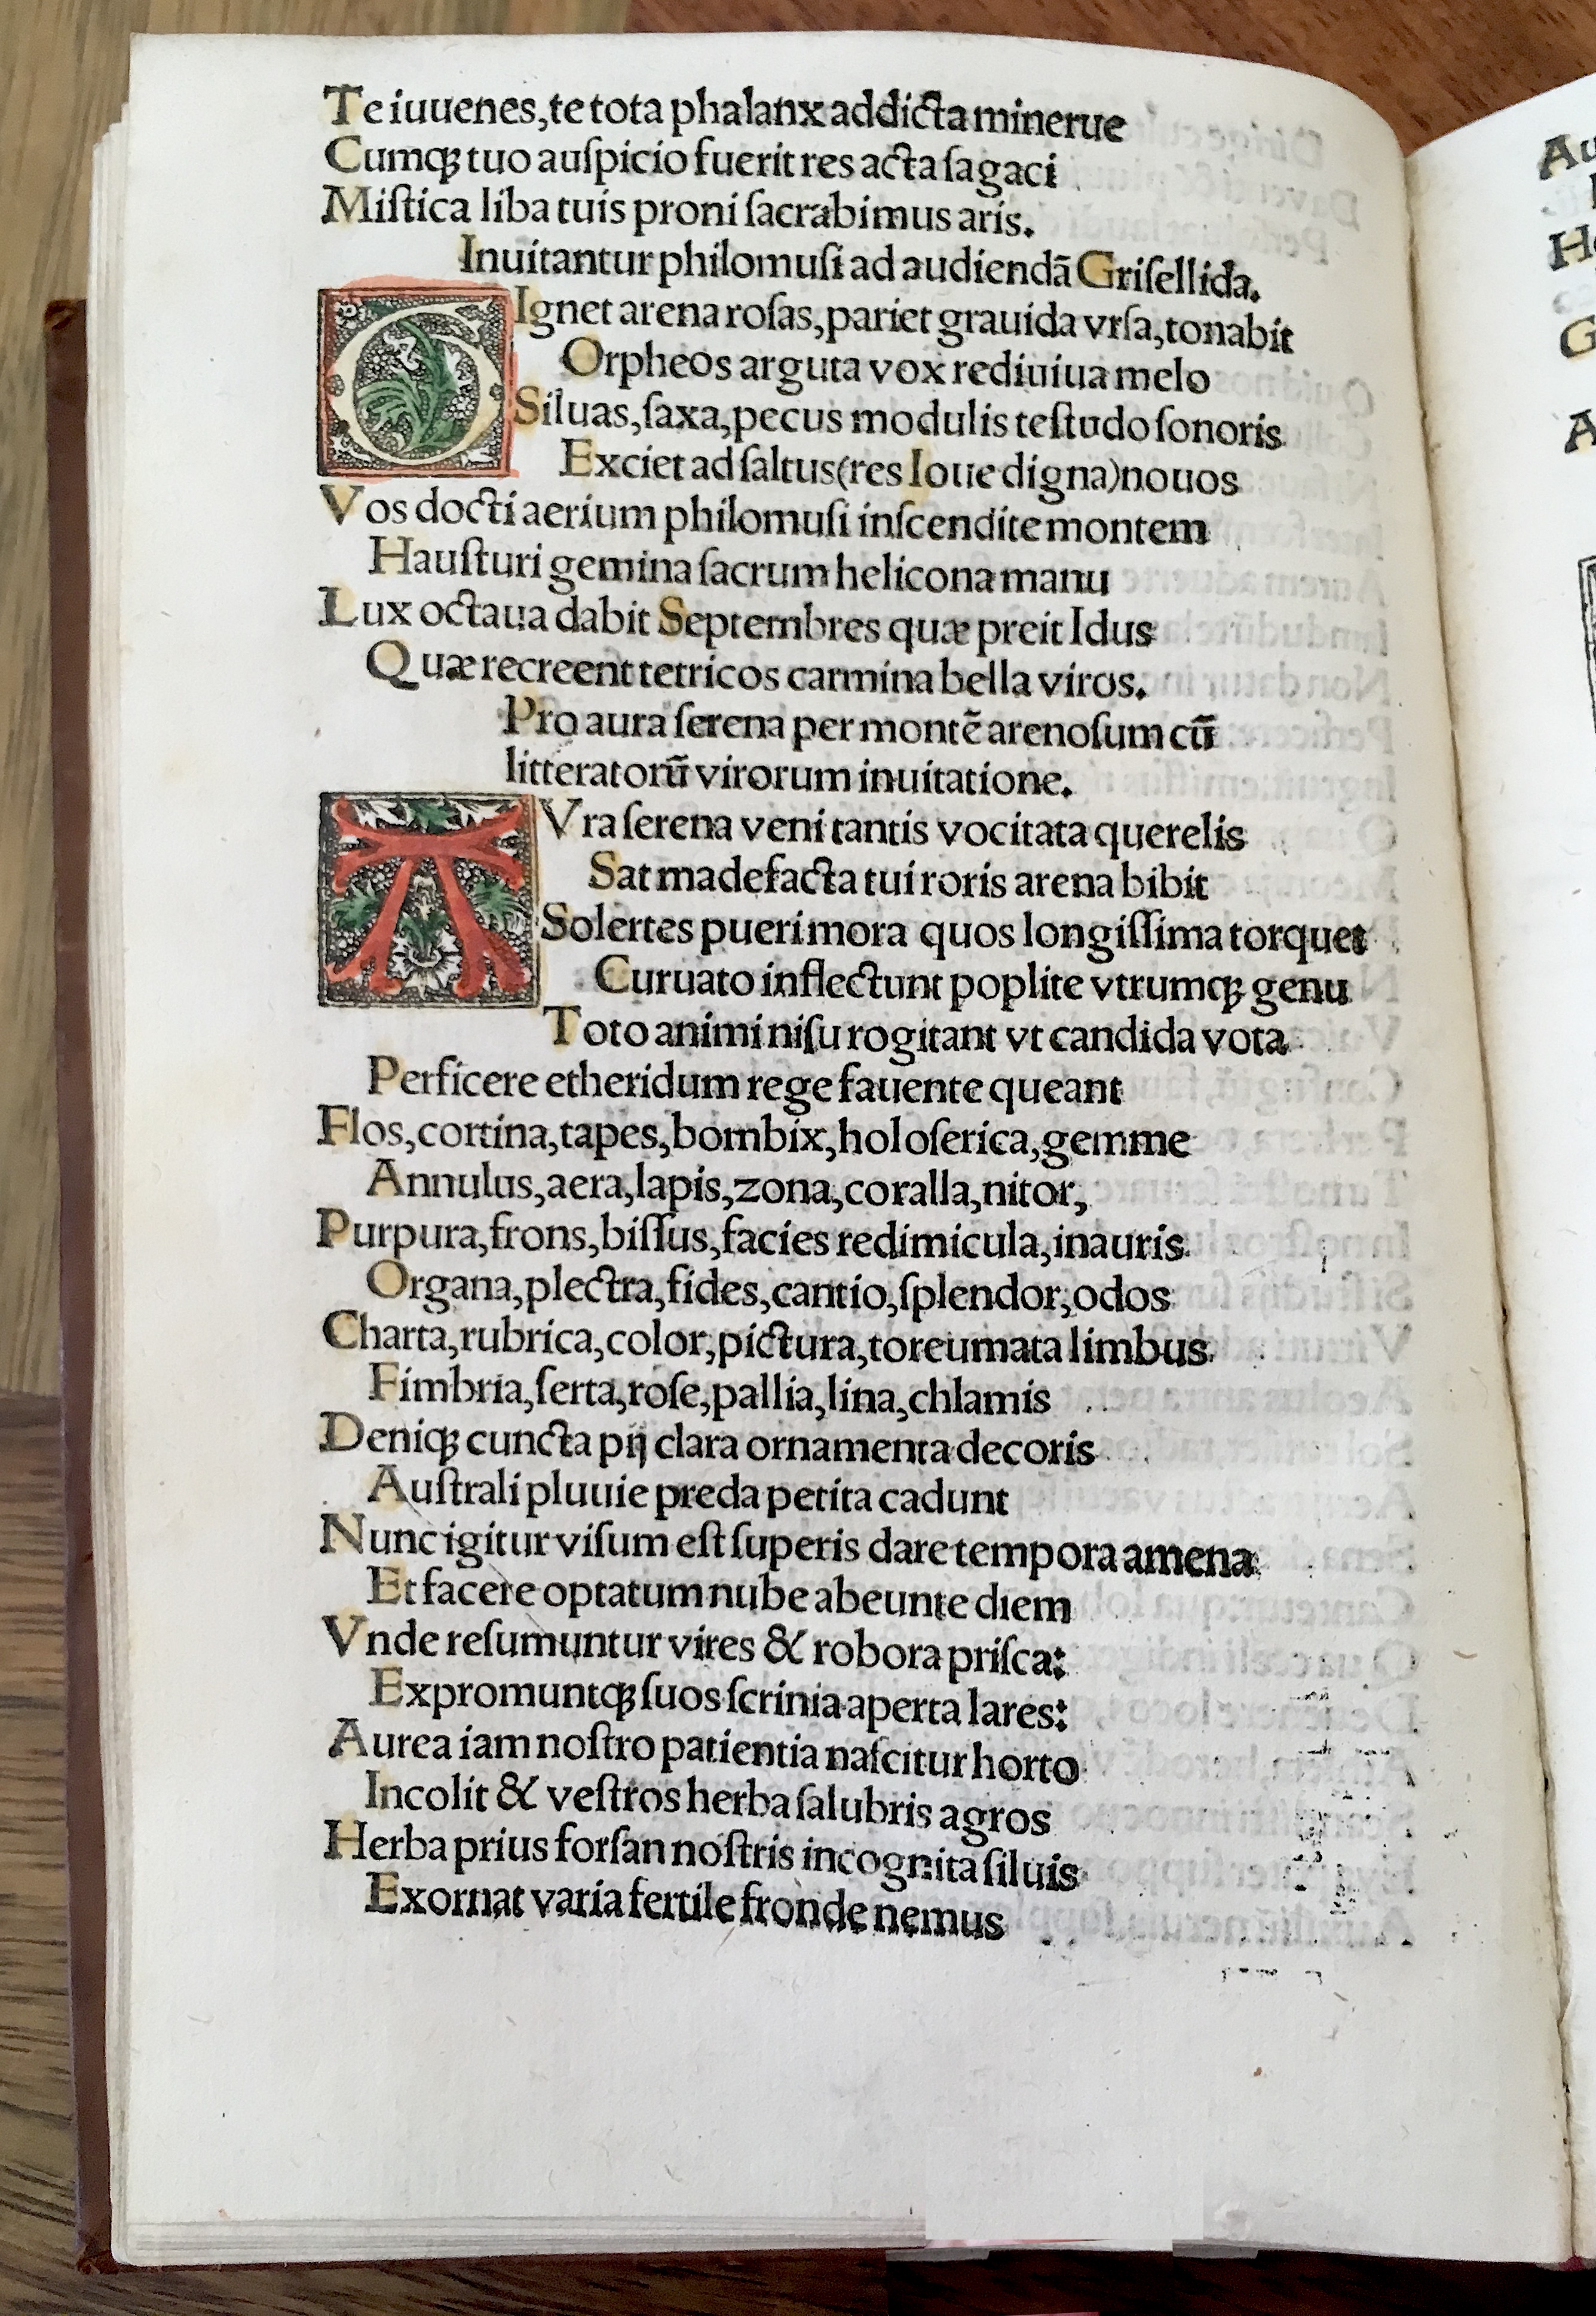 Te iuuenes,te tota phalanx addicta minerue
Cumqꝫ tuo auſpicio fuerit res acta ſagaci
Miſtica liba tuis proni ſacrabimus aris.
Inuitantur philomuſi ad audiendā Griſellida.
GIgnet arena roſas,pariet grauida vrſa,tonabit
Orpheos arguta vox rediuiua melo
Siluas,ſaxa,pecus modulis teſtudo ſonoris
Exciet ad ſaltus(res Ioue digna)nouos
Vos docti aerium philomuſi inſcendite montem
Hauſturi gemina ſacrum helicona manu
Lux octaua dabit Septembres quæ preit Idus
Quæ recreent tetricos carmina bella viros.
Pro aura ſerena per montē arenoſum cū
litteratorū virorum inuitatione.
AVra ſerena veni tantis vocitata querelis
Sat madefacta tui roris arena bibit
Solertes pueri mora quos longiſſima torquet
Curuato inflectunt poplite vtrumqꝫ genu
Toto animi niſu rogitant vt candida vota
Perficere etheridum rege fauente queant
Flos,cortina,tapes,bombix,holoſerica,gemme
Annulus,aera,lapis,zona,coralla,nitor,
Purpura,frons,biſſus,facies redimicula,inauris
Organa,plectra,fides,cantio,ſplendor,odos
Charta,rubrica,color,pictura,toreumata limbus
Fimbria,ſerta,roſe,pallia,lina,chlamis
Deniqꝫ cuncta pij clara ornamenta decoris
Auſtrali pluuie preda petita cadunt
Nunc igitur viſum eſt ſuperis dare tempora amena
Et facere optatum nube abeunte diem
Vnde reſumuntur vires & robora priſca:
Expromuntqꝫ ſuos ſcrinia aperta lares:
Aurea iam noſtro patientia naſcitur horto
Incolit & veſtros herba ſalubris agros
Herba prius forſan noſtris incognita ſiluis
Exornat varia fertile fronde nemus